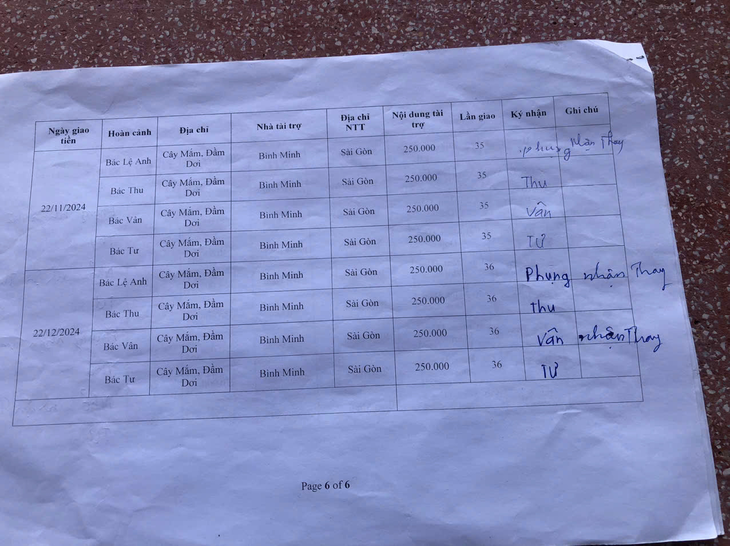 Ngày giao tiền Hoàn cảnh Địa chỉ Nhà tài trợ Địa chỉ NTT Nội dung tài trợ Lần giao Ký nhận Ghi chú
22/11/2024
Bác Lệ Anh Cây Mắm, Đầm Dơi Bình Minh Sài Gòn 250.000 35 Phụng nhận Thay
Bác Thu Cây Mắm, Đầm Dơi Bình Minh Sài Gòn 250.000 35 Thu
Bác Vân Cây Mắm, Đầm Dơi Bình Minh Sài Gòn 250.000 35 Vân
Bác Tư Cây Mắm, Đầm Dơi Bình Minh Sài Gòn 250.000 35 TƯ
22/12/2024
Bác Lệ Anh Cây Mắm, Đầm Dơi Bình Minh Sài Gòn 250.000 36 Phụng nhận Thay
Bác Thu Cây Mắm, Đầm Dơi Bình Minh Sài Gòn 250.000 36 Thu
Bác Vân Cây Mắm, Đầm Dơi Bình Minh Sài Gòn 250.000 36 Vân nhận Thay
Bác Tư Cây Mắm, Đầm Dơi Bình Minh Sài Gòn 250.000 36 TƯ
Page 6 of 6